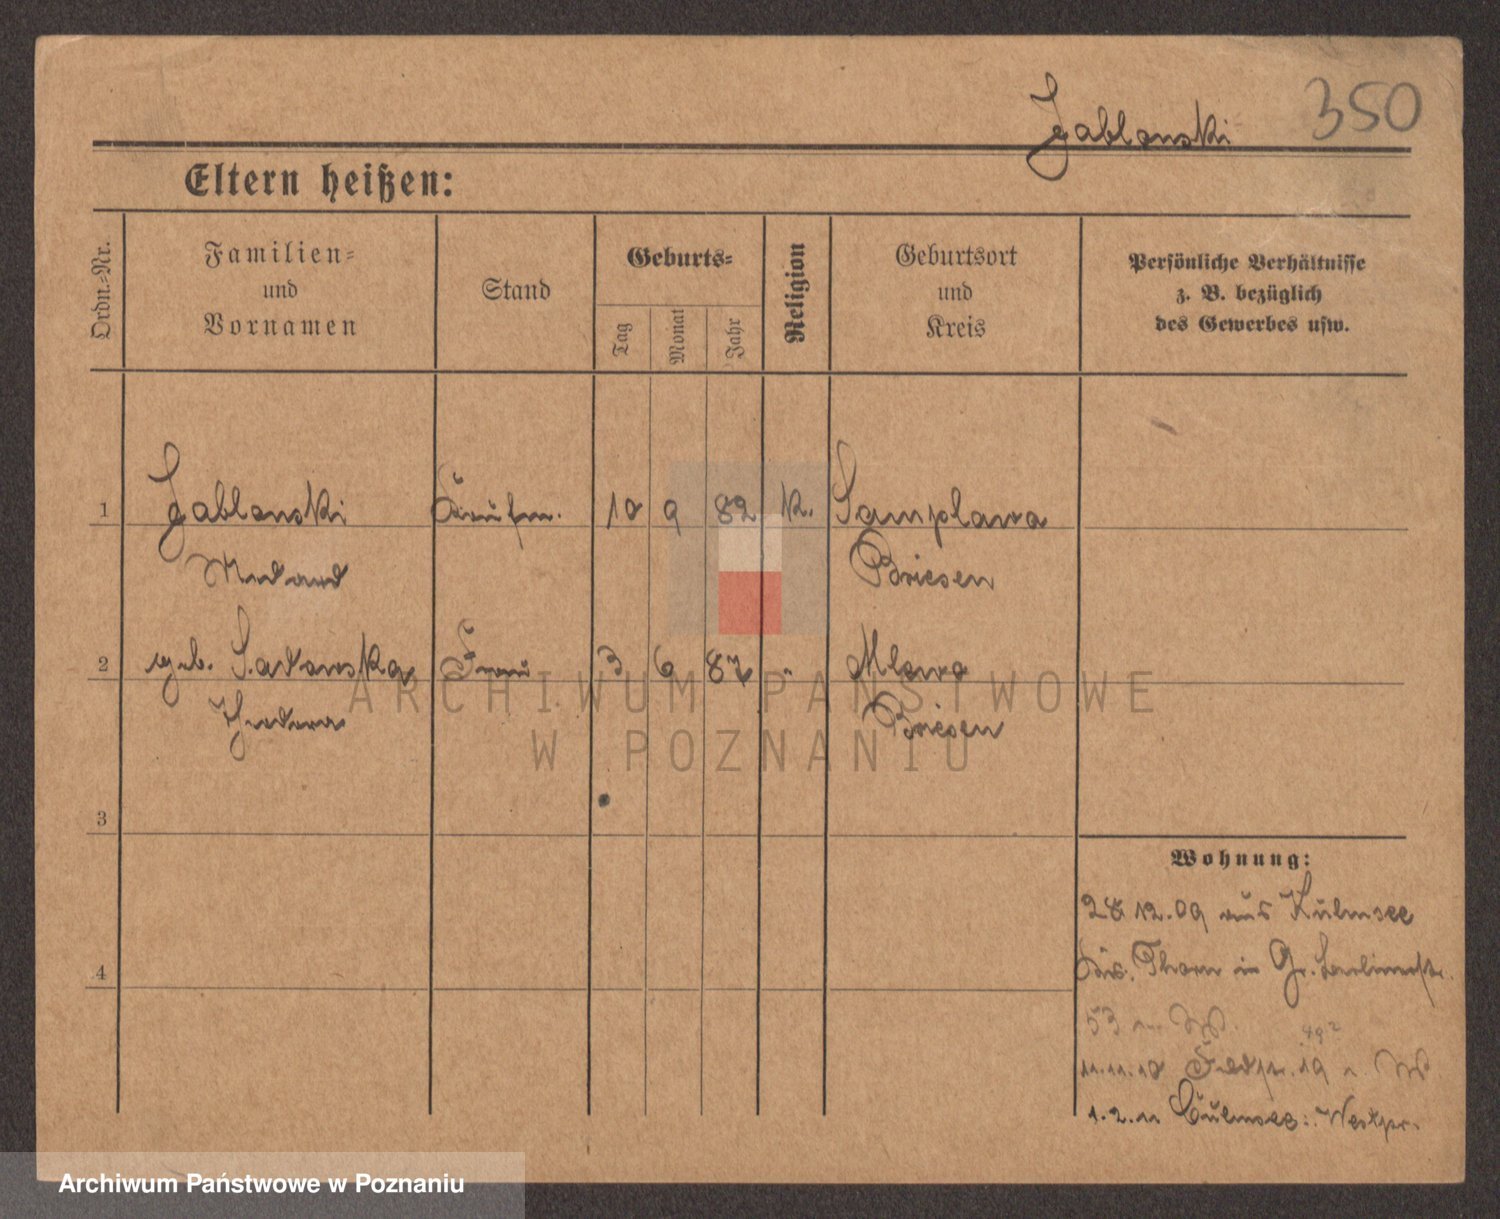 350
Jablonski
Eltern heißen:
Ordn.-Nr.
Familien-
und
Vornamen
Stand
Geburts-
Tag
Monat
Jahr
Religion
Geburtsort
und
Kreis
Persönliche Verhältnisse
z. B. bezüglich
des Gewerbes usw.
1 Jablonski Kaufm. 10 9 82 K. Samplawa
Medard Briesen
2 geb. Sadowska Frau 3 6 87 " Mlewo
Briesen
3
4
Wohnung:
28 12.09 aus Kulmsee
Krs. Thorn in Gr. Berlinerstr.
53
49²
11.11.10 19
1.2.11 Culmsee Westpr.
ARCHIWUM PAŃSTWOWE
W POZNANIU
Archiwum Państwowe w Poznaniu